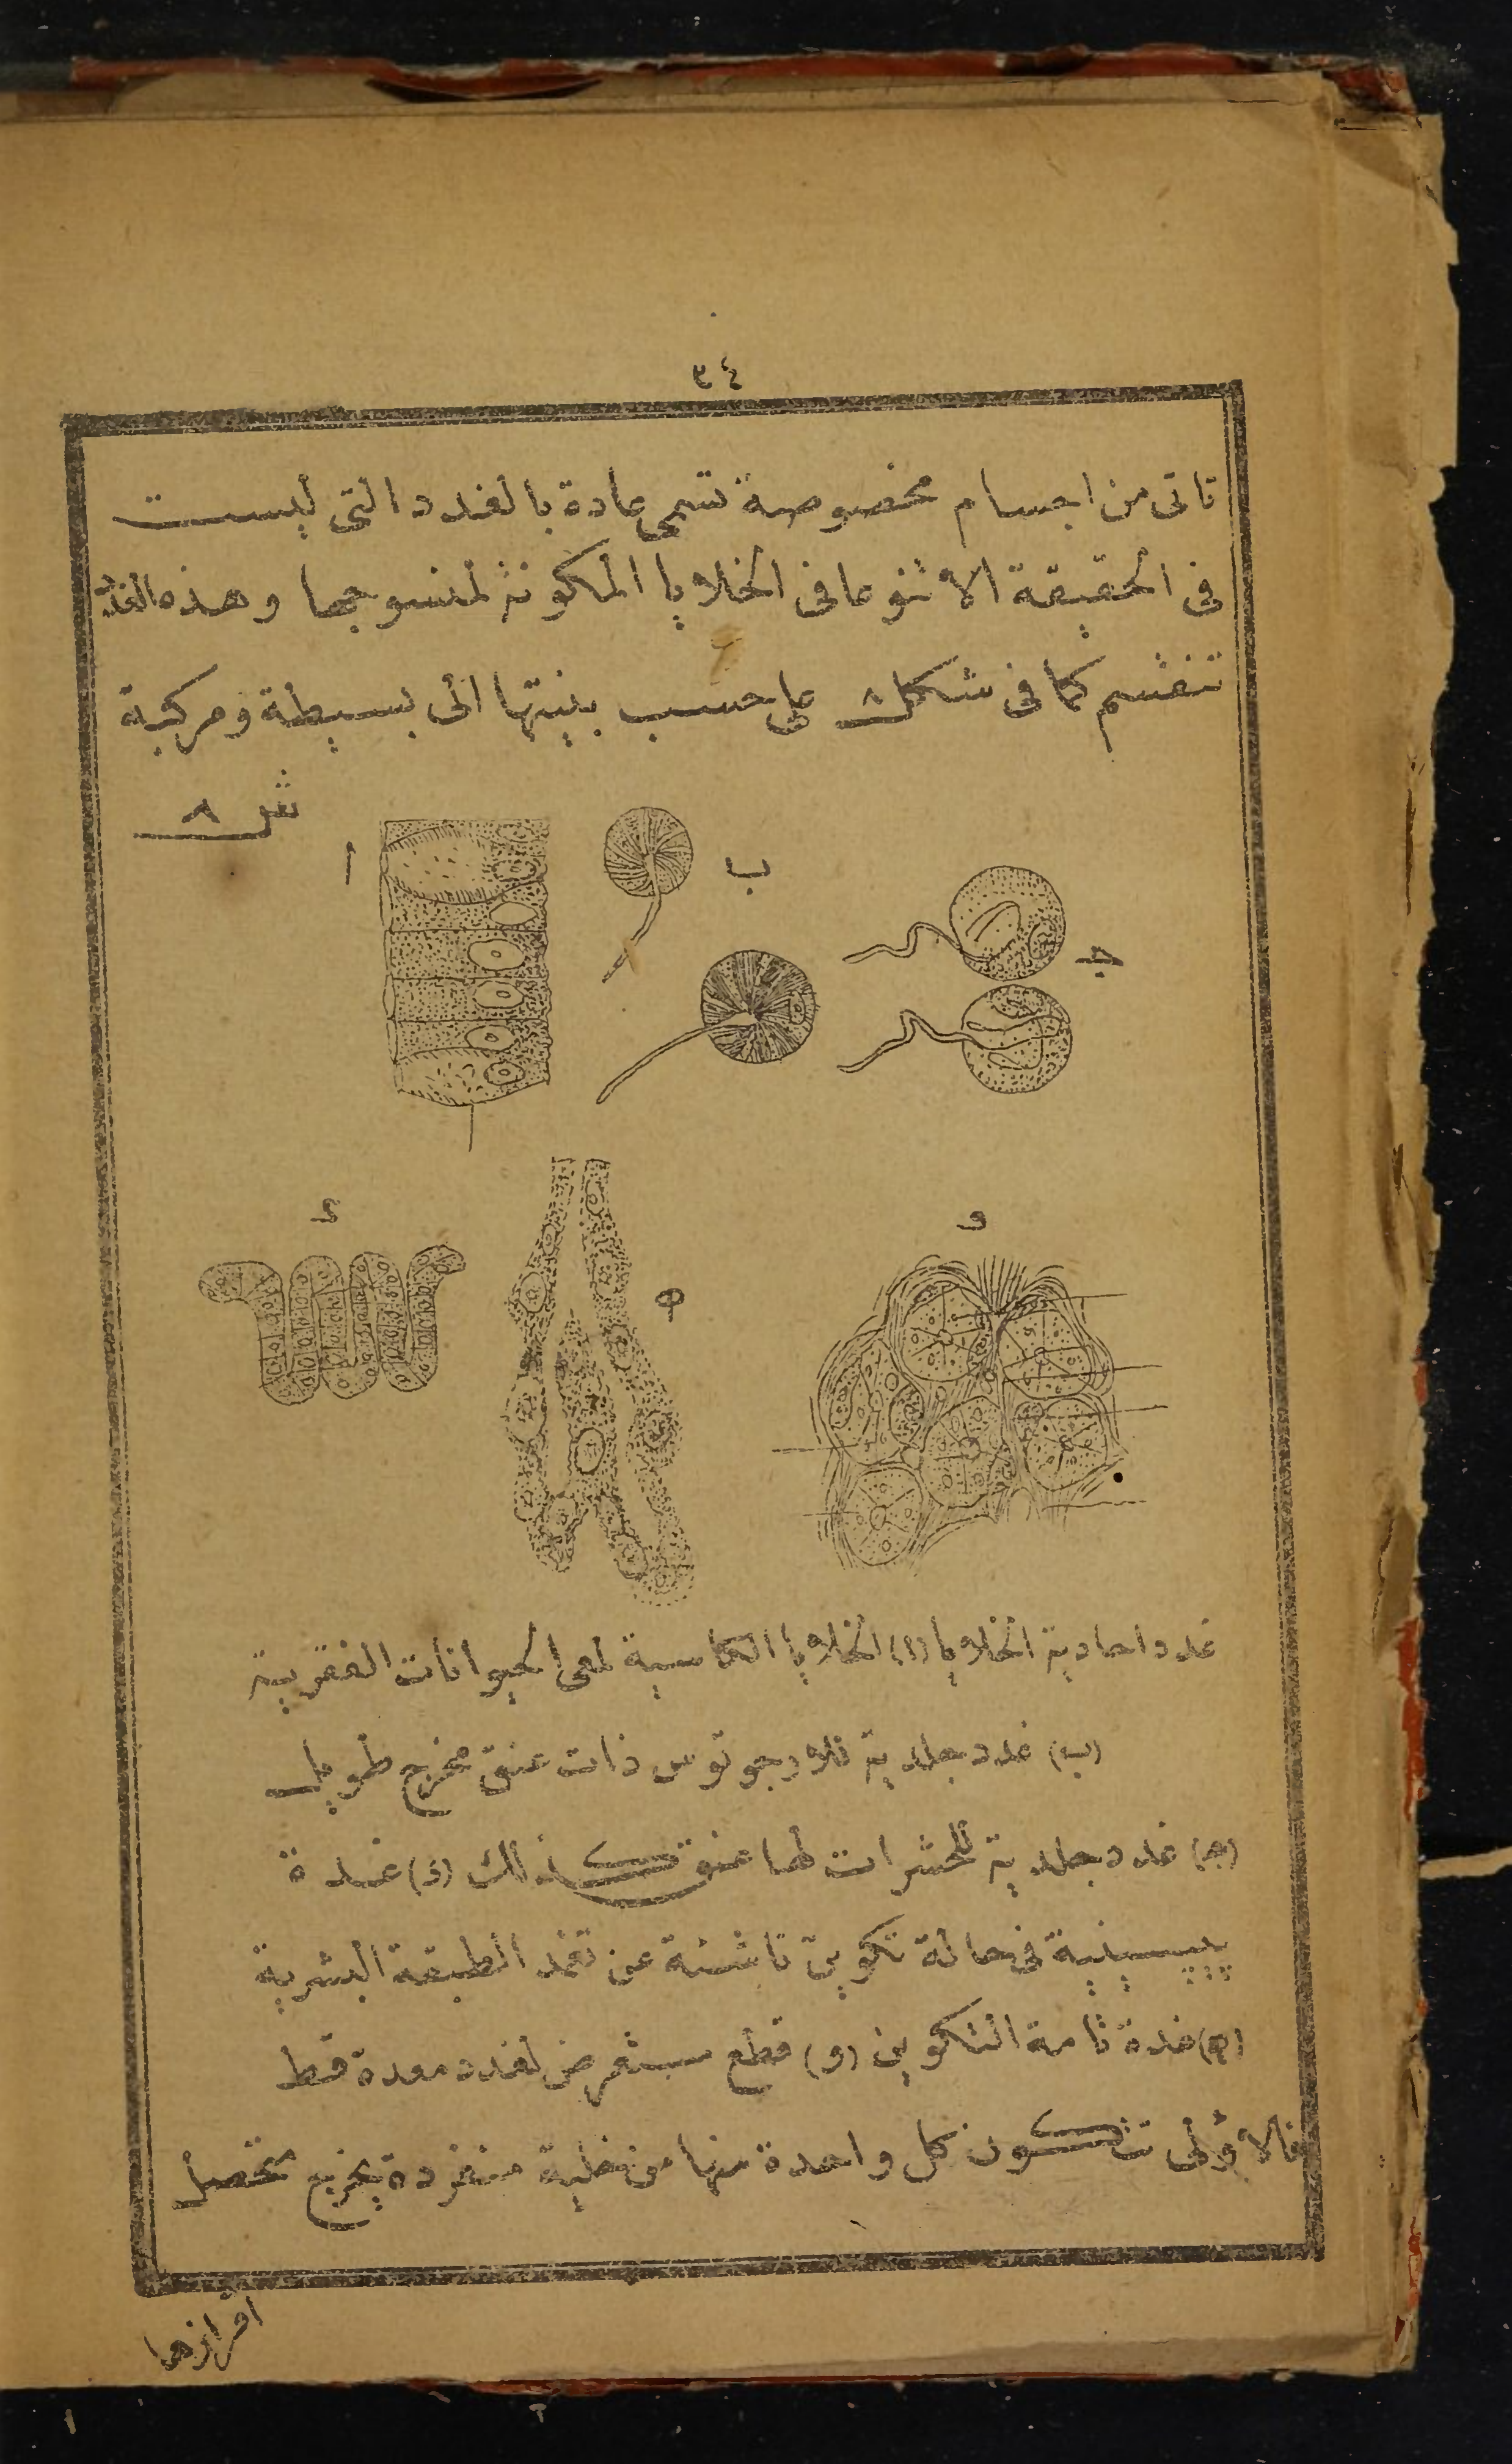 ٣٤
تاتى من اجسام مخصوصة تسمى عادة بالغدد التى ليست
فى الحقيقة الا تنوعا فى الخلايا المكونة لمنسوجها وهذه الغدد
تنقسم كما فى شكل ٨ على حسب بنيتها الى بسيطة ومركبة
ش ٨
ا
ب
ج
د
و
ه
غدد احادية الخلايا (ا) الخلايا الكاسية لمعى الحيوانات الفقرية
(ب) غدد جلدية ذات عنق مخرج طويل
(ج) غدد جلدية للحشرات لها عنق كذلك (د) غدة
پيپسينية فى حالة تكوين ناشئة عن تغمد الطبقة البشرية
(ه) غدة تامة التكوين (و) قطع مستعرض لغدد معدة قط
فالاولى تتكون كل واحدة منها من خلية منفردة يخرج متحصل
افرازها